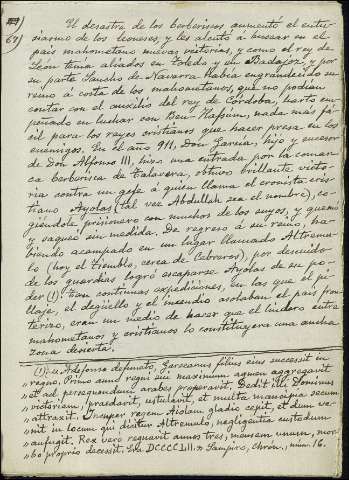 67)
El desastre de los berberiscos aumentó el entu-
siasmo de los leoneses y les alentó á buscar en el
país mahometano nuevas victorias, y como el rey de
León tenía aliados en Toledo y en Badajoz, y por
su parte Sancho de Navarra había engrandecido su
reino á costa de los mahometanos, que no podían
contar con el auxilio del rey de Córdoba, harto em-
peñado en luchar con Ben Hafsun, nada más fá-
cil para los reyes cristianos que hacer presa en los
enemigos. En el año 911, Don García, hijo y sucesor
de Don Alfonso III, hizo una entrada por la comar-
ca berberisca de Talavera, obtuvo brillante victo-
ria contra un gefe á quien llama el cronista cris-
tiano Ayolas (tal vez Abdullah sea el nombre), co-
giéndole prisionero con muchos de los suyos, y quemó
y saqueó sin medida. De regreso á su reino, ha-
biendo acampado en un lugar llamado Altremu-
lo (hoy el Tiemblo, cerca de Cebreros), por descuido
de los guardias logró escaparse Ayolas de su po-
der (1) Tan continuas expediciones, en las que el pi-
llaje, el degüello y el incendio asolaban el país fron-
terizo, eran un medio de hacer que el lindero entre
mahometanos y cristianos lo constituyera una ancha
zona desierta.
(1) "Adefonso defuncto, Garseanus filius eius successit in
"regno. Primo anno regni sui maximum agmen aggregavit
"et ad persequendum arabes properavit. Dedit illi Dominus
"victoriam, praedavit, ustulavit, et multa mancipia secum
"attraxit. Insuper regem Aiolam gladio cepit, et dum ve-
"nit in locum qui dicitur Altremulo, negligentia custodum
"aufugit. Rex vero regnavit annos tres, mensem unum, mor-
"bo proprio decessit. Era DCCCCLII." Sampiro, Chrón., núm. 16.